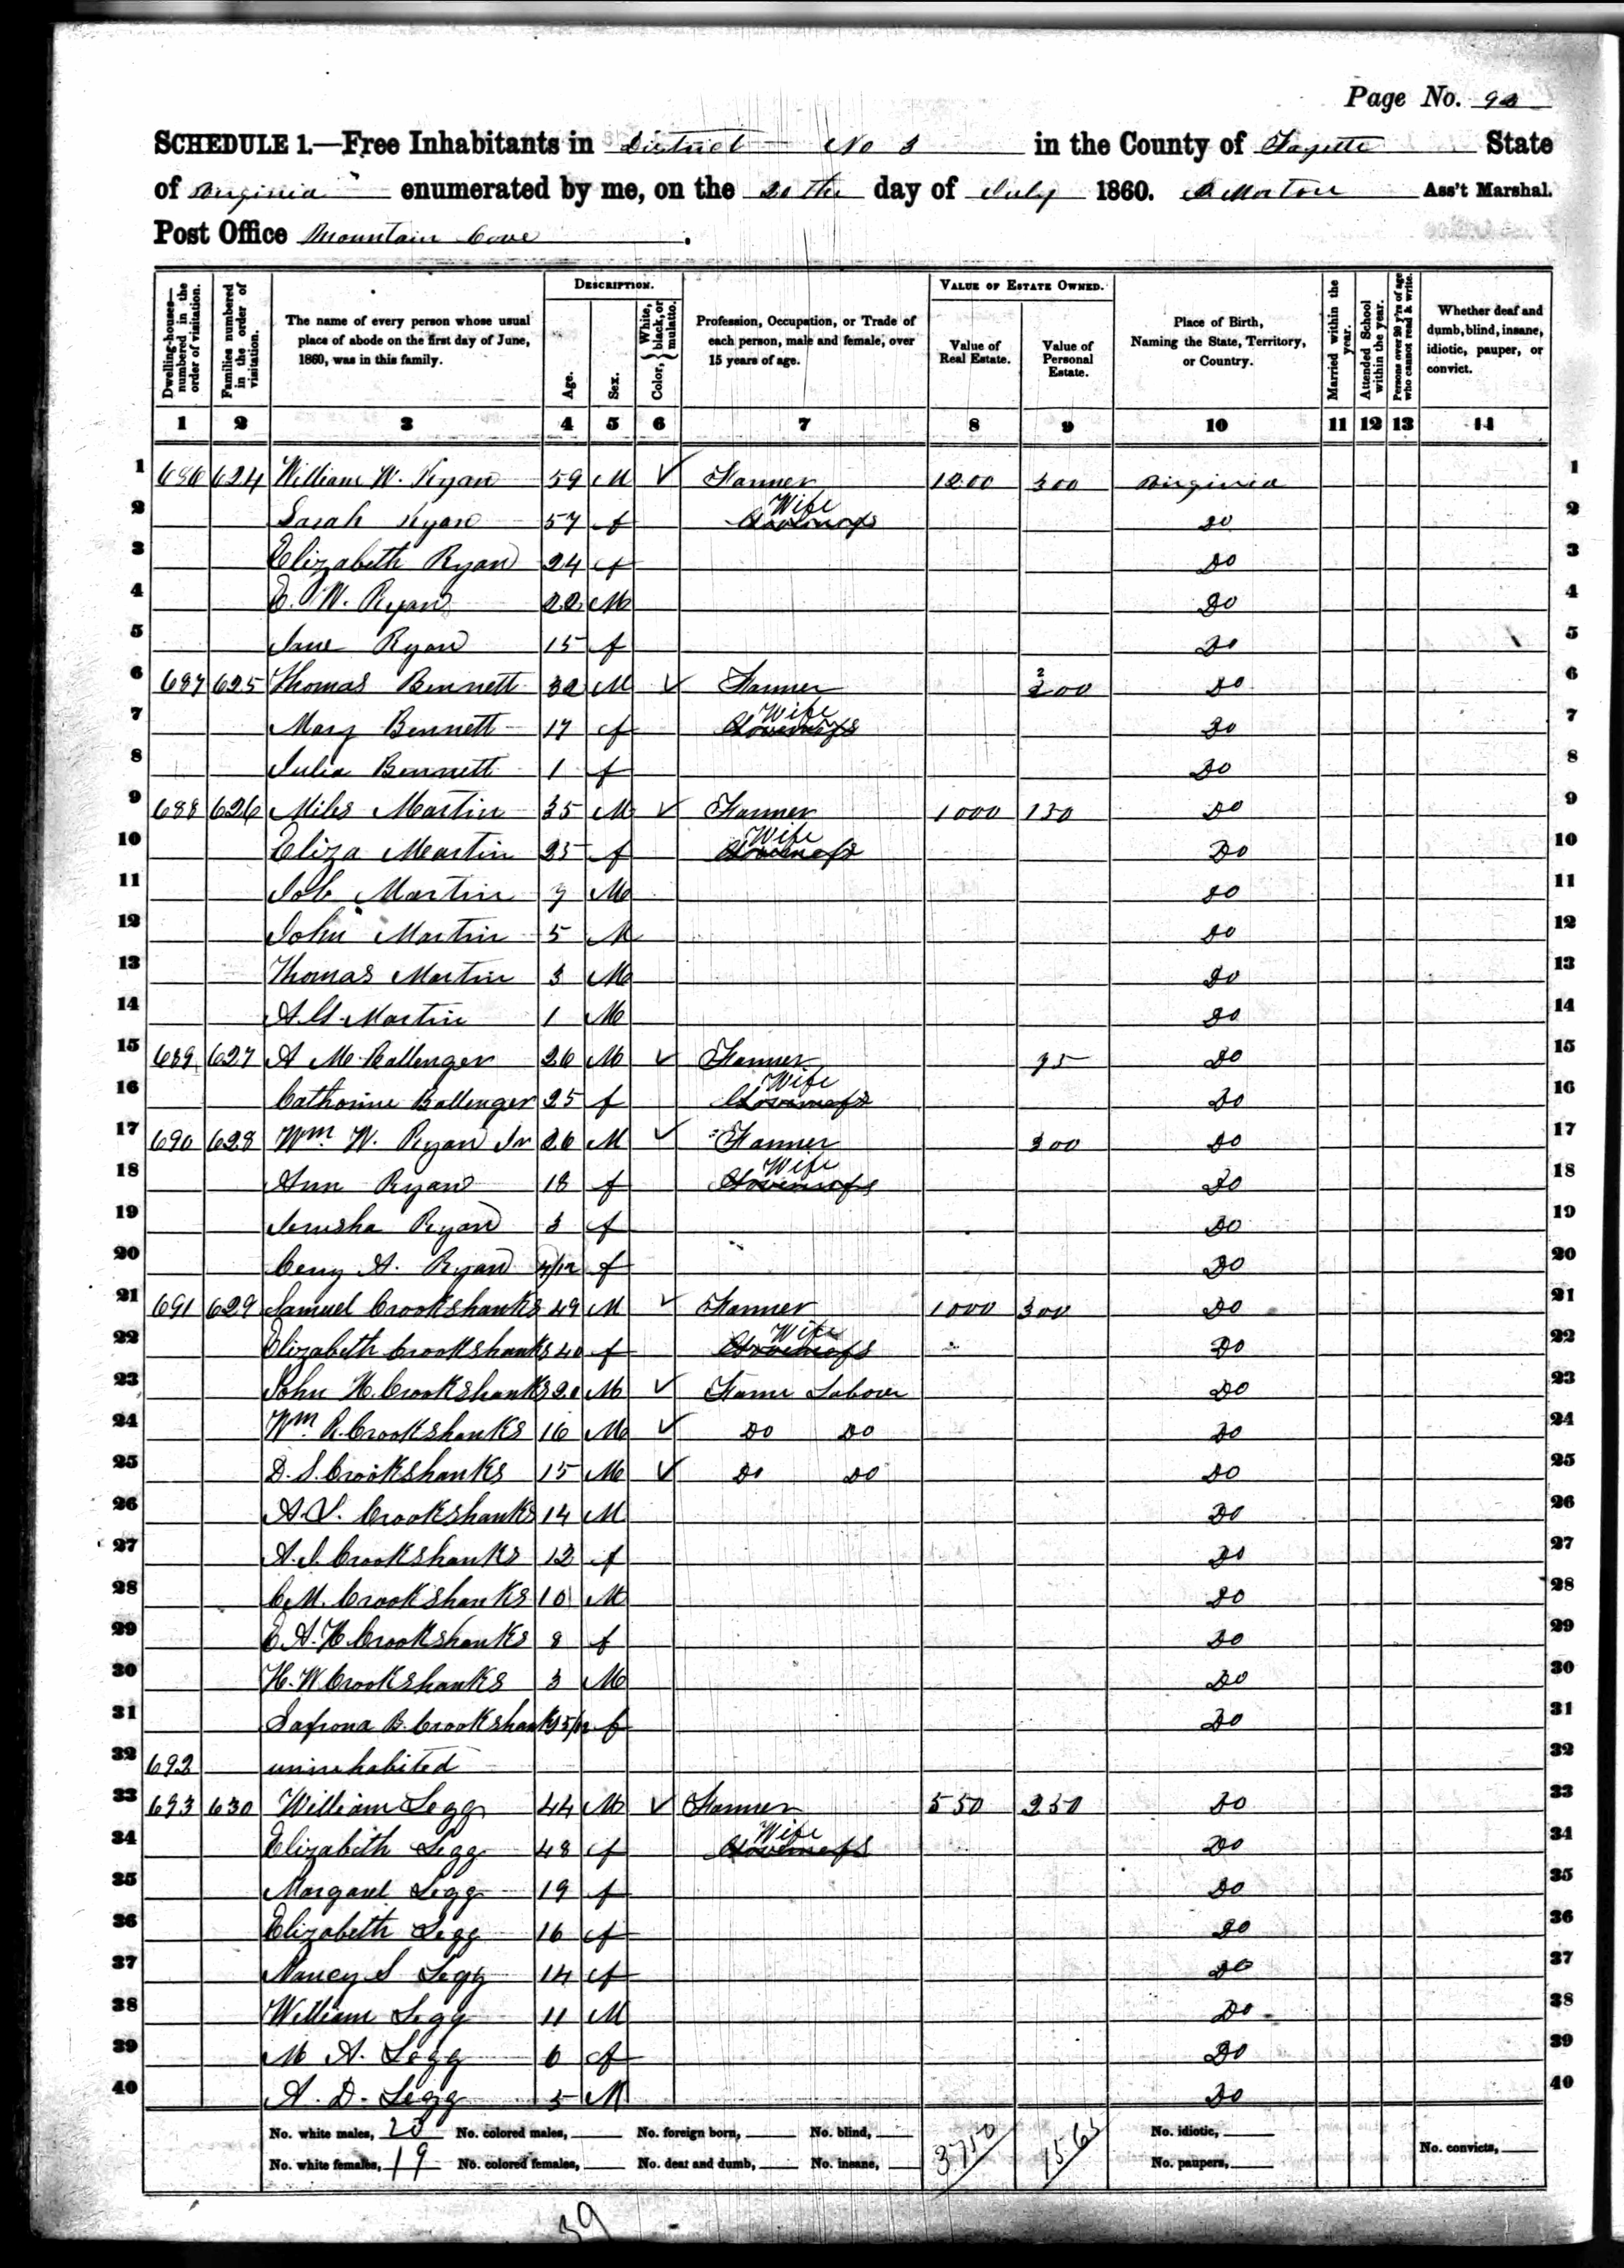 Page No. 93
SCHEDULE 1.—Free Inhabitants in District No 3 in the County of Fayette State
of Virginia enumerated by me, on the 20th day of July 1860. Morton Ass't Marshal.
Post Office Mountain Cove.
Dwelling-houses—numbered in the order of visitation.
Families numbered in the order of visitation.
The name of every person whose usual place of abode on the first day of June, 1860, was in this family.
DESCRIPTION.
Age.
Sex.
Color, { White, black, or mulatto.
Profession, Occupation, or Trade of each person, male and female, over 15 years of age.
VALUE OF ESTATE OWNED.
Value of Real Estate.
Value of Personal Estate.
Place of Birth, Naming the State, Territory, or Country.
Married within the year.
Attended School within the year.
Persons over 20 y'rs of age who cannot read & write.
Whether deaf and dumb, blind, insane, idiotic, pauper, or convict.
1 2 3 4 5 6 7 8 9 10 11 12 13 14
1 686 624 William W. Ryan 59 M ✓ Farmer 1200 300 Virginia 1
2 Sarah Ryan 57 f Wife Do 2
3 Elizabeth Ryan 24 f Do 3
4 E. W. Ryan 22 M Do 4
5 Jane Ryan 15 f Do 5
6 687 625 Thomas Bennett 32 M ✓ Farmer 200 Do 6
7 Mary Bennett 17 f Wife Do 7
8 Julia Bennett 1 f Do 8
9 688 626 Miles Martin 35 M ✓ Farmer 1000 150 Do 9
10 Eliza Martin 25 f Wife Do 10
11 Job Martin 7 M Do 11
12 John Martin 5 M Do 12
13 Thomas Martin 3 M Do 13
14 A. G. Martin 1 M Do 14
15 689 627 A M Ballenger 26 M ✓ Farmer 95 Do 15
16 Catharine Ballenger 25 f Wife Do 16
17 690 628 Wm W. Ryan Jr 26 M ✓ Farmer 300 Do 17
18 Ann Ryan 18 f Wife Do 18
19 Jerusha Ryan 3 f Do 19
20 A. Ryan /12 f Do 20
21 691 629 Samuel Crookshanks 49 M ✓ Farmer 1000 300 Do 21
22 Elizabeth Crookshanks 40 f Wife Do 22
23 John H. Crookshanks 20 M ✓ Farm Labour Do 23
24 Wm R. Crookshanks 16 M ✓ Do Do Do 24
25 D. S. Crookshanks 15 M ✓ Do Do Do 25
26 A. V. Crookshanks 14 M Do 26
27 A. J. Crookshanks 12 f Do 27
28 C. M. Crookshanks 10 M Do 28
29 E A. H Crookshanks 8 f Do 29
30 H. W Crookshanks 3 M Do 30
31 Safrona B. Crookshanks 5/12 f Do 31
32 692 uninhabited 32
33 693 630 William Legg 44 M ✓ Farmer 550 250 Do 33
34 Elizabeth Legg 48 f Wife Do 34
35 Margaret Legg 19 f Do 35
36 Elizabeth Legg 16 f Do 36
37 Nancy S Legg 14 f Do 37
38 William Legg 11 M Do 38
39 M A. Legg 6 f Do 39
40 A. D. Legg 5 M Do 40
No. white males, 20 No. colored males, No. foreign born, No. blind, 3750 1565 No. idiotic,
No. white females, 19 No. colored females, No. deaf and dumb, No. insane, No. paupers, No. convicts,
39